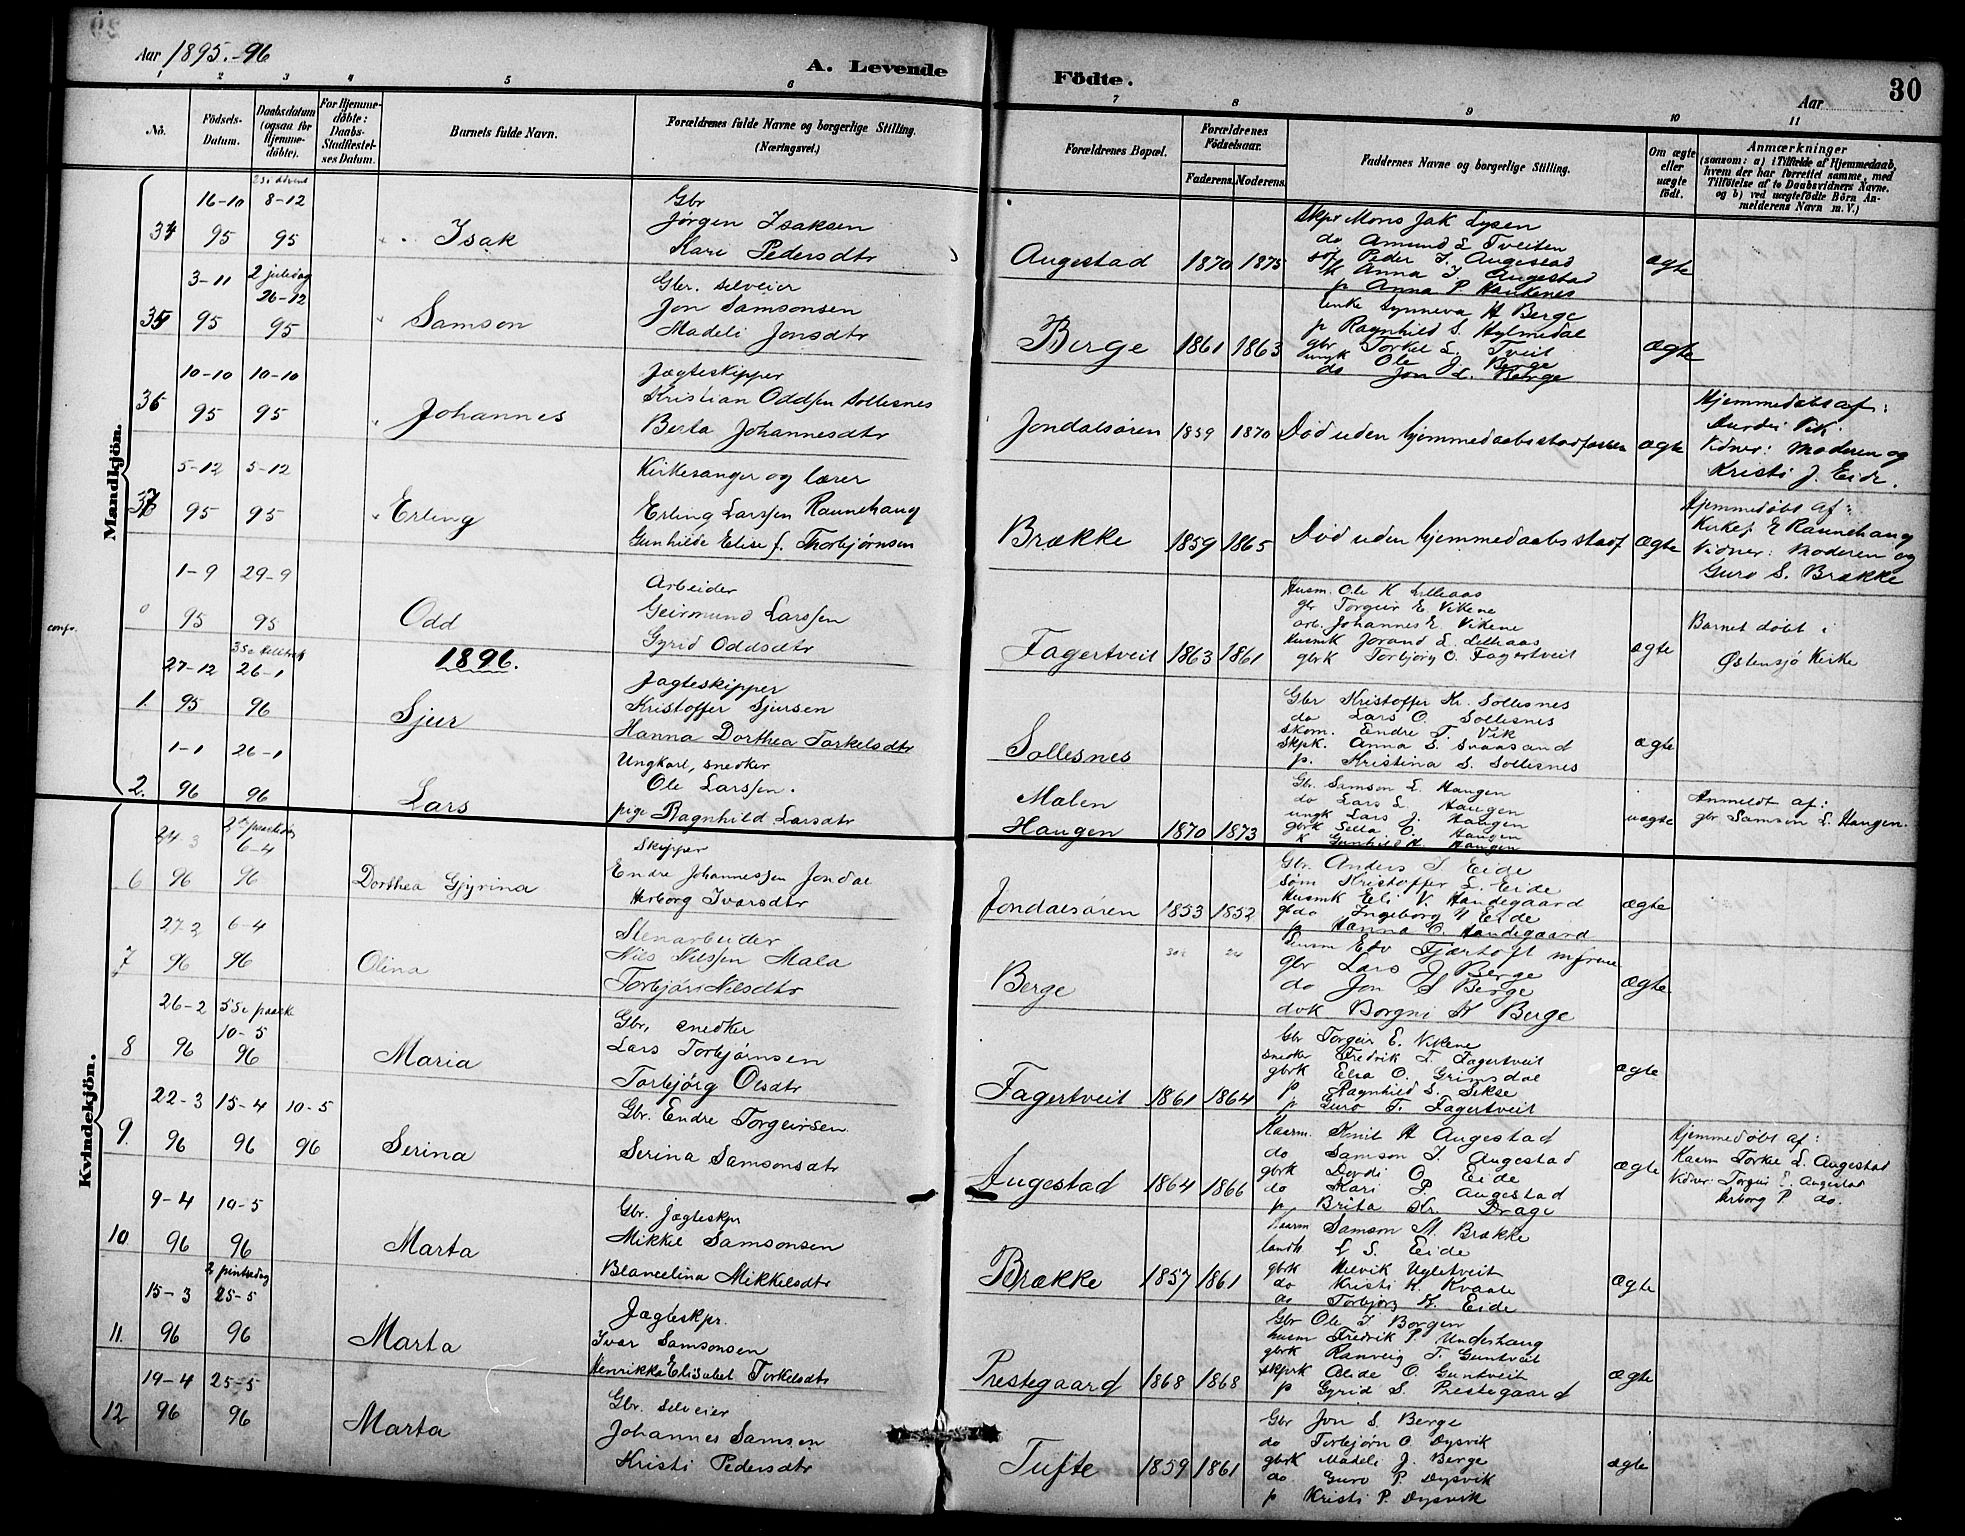 Aar 1895.-96
A. Levende
Födte.
Aar
30
1 2 3 4 5 6 7 8 9 10 11
No.
Födsels-
Datum.
Daabsdatum
(ogsaa for
Hjemme-
döbte).
For Hjemme-
döbte:
Daabs-
Stadfæstel-
ses Datum.
Barnets fulde Navn.
Forældrenes fulde Navne og borgerlige Stilling.
(Næringsvei.)
Forældrenes Bopæl.
Forældrenes
Födselsaar.
Faderens. Moderens.
Faddernes Navne og borgerlige Stilling.
Om ægte
eller
uægte
født.
Anmærkninger
(saasom: a) i Tilfælde af Hjemmedaab,
hvem der har forrettet samme, med
Tilføielse af to Daabsvidners Navne.
og b) ved uægtefødte Börn An-
melderens Navn m. V.)
Mandkjön.
2 S i advent
16-10 8-12
34 95 95
Isak
Gbr
Jørgen Isaksen
Kari Pedersdtr
Augestad 1870 1875
Skpr Mons Jak Lysen
do Amund L Tveiten
Peder I. Augestad
Anna I. Augestad
p Anna P. Haukenes
ægte
3-11 2 juledag
26-12
35 95 95
Samson
Gbr. selveier
Jon Samsonsen
Madeli Jonsdtr
Berge 1861 1863
enke Synneva H Berge
p Ragnhild S. Hylmedal
gbr Torkel L. Tveit
ungk Ole J. Berge
do Jon L. Berge
ægte
10-10 10-10
36 95 95
Johannes
Jægteskipper
Kristian Oddsen Sollesnes
Berta Johannesdtr
Jondalsøren 1859 1870
Død uden hjemmedaabsstadfæstn
ægte
Hjemmedøbt af:
Durdei Vik
Vidner: Moderen og
Kristi J. Eide.
5-12 5-12
37 95 95
Erling
Kirkesanger og lærer
Erling Larssen Raunehaug
Gunhilde Elise f. Thorbjørnsen
Brække 1859 1865
Død uden hjemmedaabsstadf
ægte
Hjemmedøbt af:
Kirkes E Raunehaug
Vidner: Moderen og
Guro S. Brække
1-9 29-9
0 95 95
Odd
Arbeider
Geirmund Larssen
Gyrid Oddsdtr
Fagertveit 1863 1861
Husm. Ole K Lilleaas
gbr Torgeir E. Vikene
arb. Johannes E. Vikene
Husmk Jorand L. Lilleaas
gbrk Torbjørg O. Fagertveit
ægte
Barnet døbt i
Østensjø Kirke
confr.
1896.
27-12 26-1
1. 95 96
Sjur
Jagteskipper
Kristoffer Sjursen
Hanna Dorthea Torkelsdtr
Sollesnes
Gbr Kristoffer Kr. Sollesnes
do Lars O. Sollesnes
Skom. Endre T. Vik
Skpk. Anna S. Svaasand
p. Kristina S. Sollesnes
ægte
1-1 26-1
2. 96 96
Lars
Ungkarl, snedker
Ole Larssen.
pige Ragnhild Larsdtr
Malen
Haugen 1870 1873
Gbr. Samson L. Haugen
do Lars L. Haugen
ungk Lars J. Haugen
gbrk Sella O. Haugen
k Gunhild H. Haugen
uægte
Anmeldt af:
gbr Samson L. Haugen.
Kvindekjön.
24 3 2den paaskedag
6-4
6 96 96
Dorthea Gjyrina
Skipper
Endre Johannessen Jondal
Herborg Ivarsdtr
Jondalsøren 1853 1852
Gbr. Anders I Eide
Søm Kristoffer L. Eide
Husmk Eli V. Handegaard
do Ingeborg N Eide
p Hanna O. Handegaard
ægte
27-2 6-4
7 96 96
Olina
Stenarbeider
Nils Nilssen Mala
Torbjør Nilsdtr
Berge
Lensm Edv Fjærtoft m frue
gbr Lars J Berge
do Jon S Berge
do k Borgni K Berge
ægte
26-2 5 S e paaske
10-5
8 96 96
Maria
Gbr, snedker
Lars Torbjørnsen
Torbjörg Olsdtr
Fagertveit 1861 1864
Gbr Torgeir E. Vikene
snedk Fredrik T. Fagertveit
gbrk Elsa O. Grimsdal
p Ragnhild S. Sekse
p Guro T. Fagertveit
ægte
22-3 15-4 10-5
9. 96 96 96
Serina
Gbr. Endre Torgeirsen
Serina Samsonsdtr
Augestad 1864 1866
Kaarm. Knut H Augestad
do Samson I. Augestad
gbrk Dordi O. Eide
do Kari P. Augestad
p. Brita Kr. Drage
ægte
Hjemmedøbt af:
Kaarm Torkel L. Augestad
Vidner: Torgeir E. Augestad
Herborg P do.
9-4 10-5
10 96 96
Marta
Gbr. Jægteskpr
Mikkel Samsonsen
Blanselina Mikkelsdtr
Brække 1857 1861
Kaarm Samson M. Brække
landh L S. Eide
gbrk Helvik Ugletveit
do Kristi K. Kvaale
do Torbjørg K. Eide
ægte
2 pintsedag
15-3 25-5
11. 96 96
Marta
Jagteskpr.
Ivar Samsonsen
Henrikke Elisabet Torkelsdtr
Prestegaard 1868 1868
Gbr Ole I Borgen
husm Fredrik P. Underhaug
gbrk Ranveig T. Guntveit
skprk Alide O. Guntveit
p Gyrid S. Prestegaard
ægte
19-4 25-5
12 96 96
Marta
Gbr. selveier
Johannes Samsen
Kristi Pedersdtr
Tufte 1859 1861
Gbr Jon S. Berge
do Torbjørn O. Dysvik
gbrk Madeli J. Berge
do. Guro P. Dysvik
p Kristi P. Dysvik
ægte